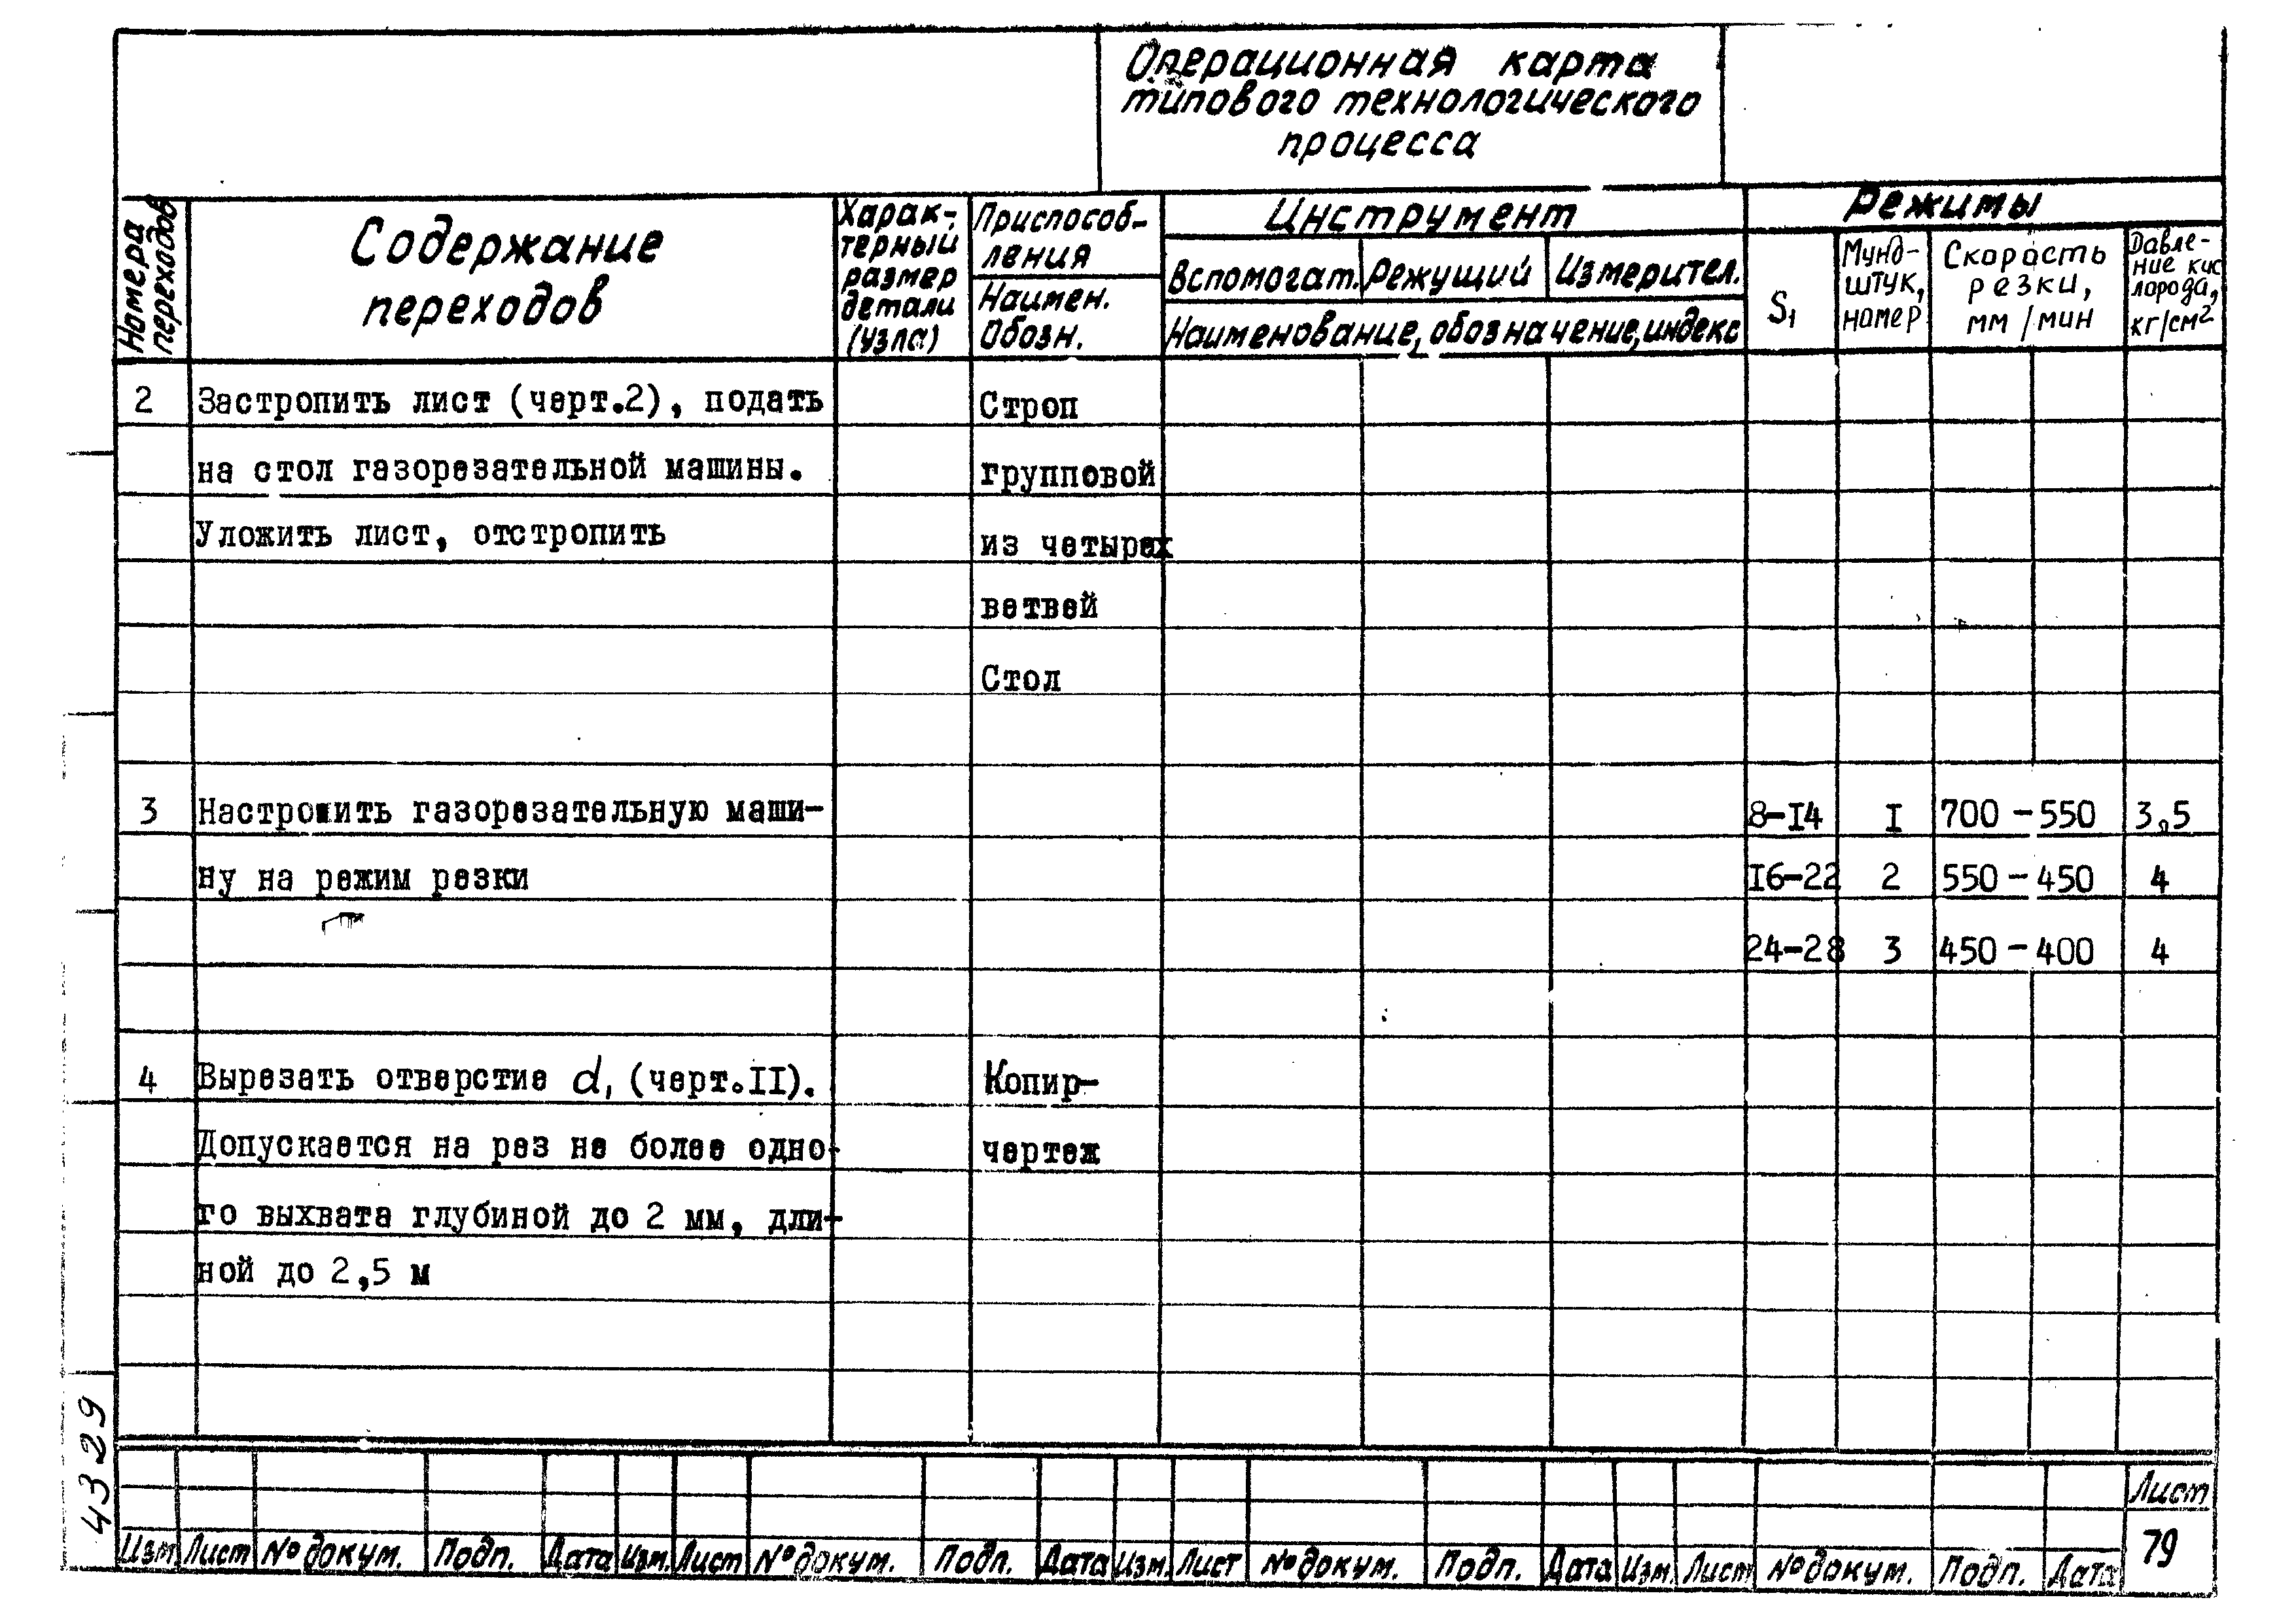 Операционная карта
типового технологического
процесса
Номера переходов
Содержание
переходов
Харак-
терный
размер
детали
(узла)
Приспособ-
ления
Наимен.
Обозн.
Инструмент
Вспомогат. Режущий Измерител.
Наименование, обозначение, индекс
Режимы
S₁
Мунд-
штук,
номер
Скорость
резки,
мм/мин
Давле-
ние кис
лорода,
кг/см²
2 Застропить лист (черт.2), подать Строп
на стол газорезательной машины. групповой
Уложить лист, отстропить из четырех
ветвей
Стол
3 Настроить газорезательную маши- 8-I4 I 700-550 3,5
ну на режим резки I6-22 2 550-450 4
24-28 3 450-400 4
4 Вырезать отверстие d₁ (черт.II). Копир-
Допускается на рез не более одно- чертеж
го выхвата глубиной до 2 мм, дли-
ной до 2,5 м
4329
Лист
79
Изм Лист № докум. Подп. Дата Изм. Лист № докум. Подп. Дата Изм. Лист № докум. Подп. Дата Изм. Лист № докум. Подп. Дата